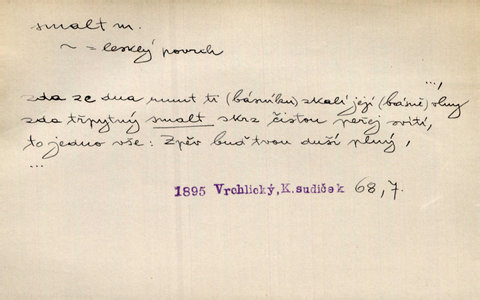 smalt m.
~ = lesklý povrch
...,
zda ze dna rmut ti (básníku) zkalí její (básně) vlny
zda třpytný smalt skrz čistou peřej svítí,
to jedno vše: Zpěv buď tvou duší plný,
...
1895 Vrchlický, K. sudiček 68, 7.